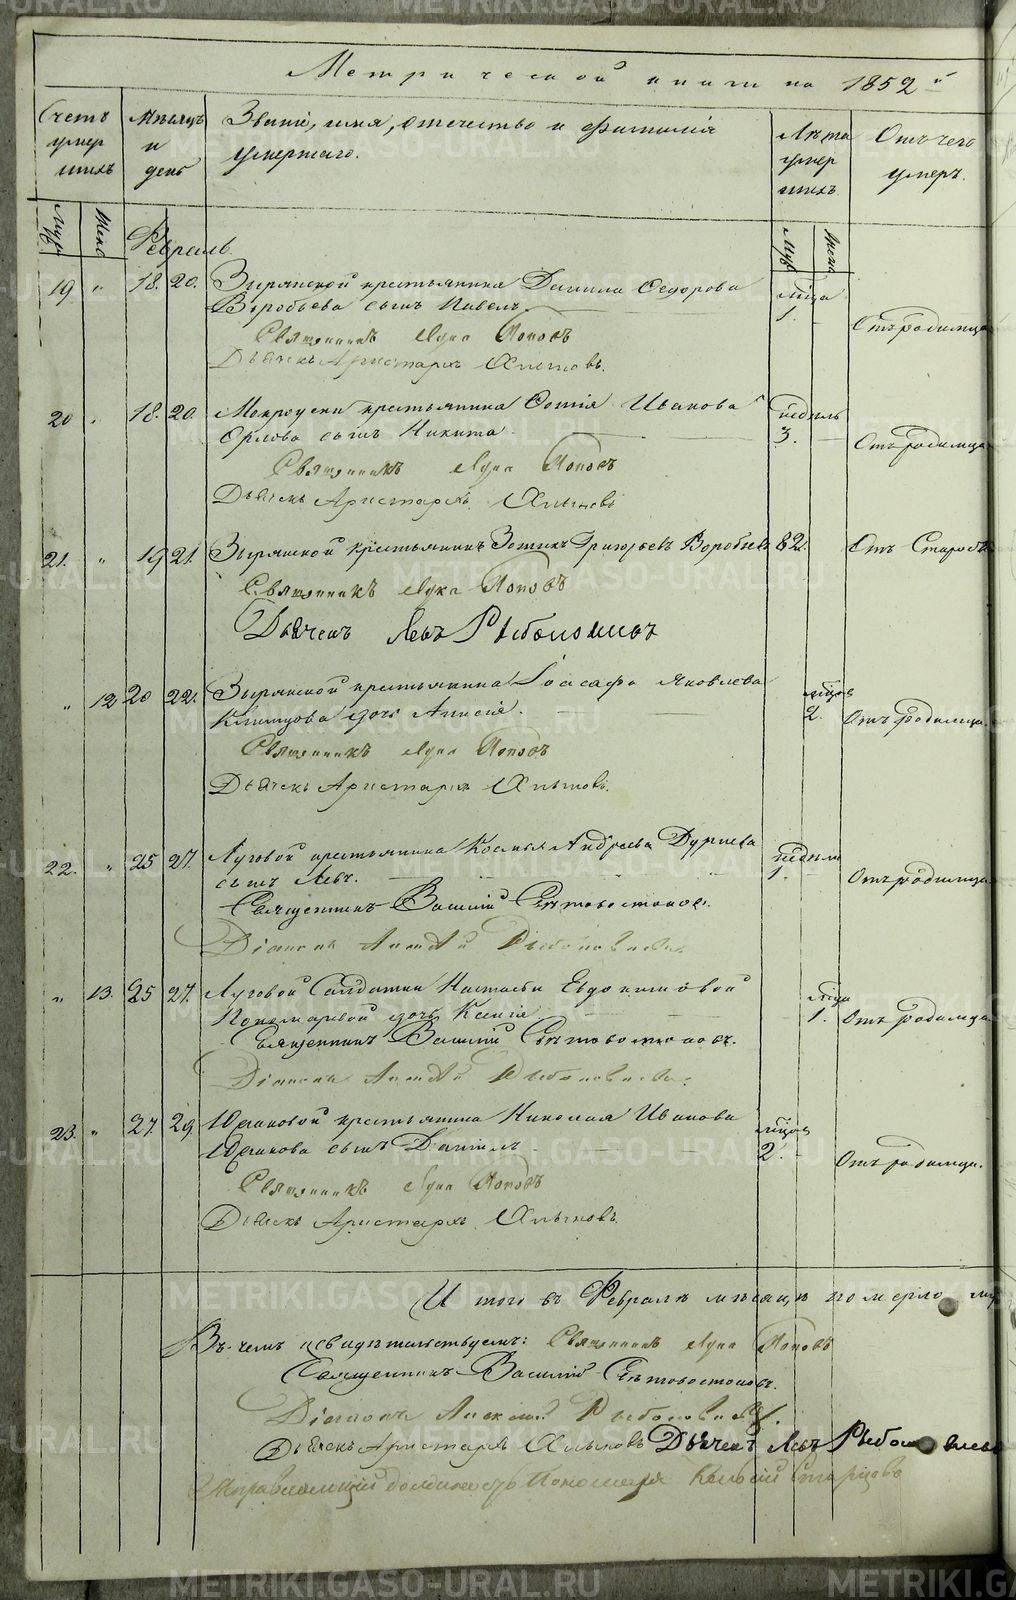 Метрической книги на 1852 й
Счетъ умер шихъ
Мѣсяцъ и день
Званіе, имя, отечество и фамилія умершаго.
Лѣта умер шихъ
Отъ чего умеръ.
Муж Жен
Февраль
Муж Жен
19 " 18. 20. Зырянской крестьянина Данила Федорова мѣца
Воробьева сынъ Павелъ. 1. Отъ родимца
Священникъ Лука Поповъ
Дьячекъ Аристархъ Хлыновъ.
20 " 18. 20. крестьянина Фотія Иванова недѣль
Орлова сынъ Никита 3. Отъ родимца
Священникъ Лука Поповъ
Дьячекъ Аристархъ Хлыновъ
21. " 19 21. Зырянской крестьянинъ Зотикъ Григорьевъ Воробьевъ 82. Отъ Старости
Священникъ Лука Поповъ
Дьячекъ Левъ
" 12 20 22. Зырянской крестьянина Іоасафа Яковлева мѣцов
дочь Анисія. 2. Отъ родимца
Священникъ Лука Поповъ
Дьячекъ Аристархъ Хлыновъ.
22. " 25 27. Луговой крестьянина Косьмы Андреева недѣли
сынъ Левъ. 1. Отъ родимца
Священникъ Василій
Діаконъ
" 13. 25 27. Луговой Солдатки Настасьи Евдокимовой мѣца
Пономаревой дочь Ксенія 1. Отъ родимца
Священникъ Василій
Діаконъ
23. " 27. 29. Южаковой крестьянина Николая Иванова мѣцов
Южакова сынъ Даніилъ 2. Отъ родимца.
Священникъ Лука Поповъ
Дьячекъ Аристархъ Хлыновъ.
Итого въ Февралѣ мѣсяцѣ померло
Въ чемъ и свидѣтельствуемъ: Священникъ Лука Поповъ
Священникъ Василій
Діаконъ Алексій
Дьячекъ Аристархъ Хлыновъ Дьячекъ Левъ
должность Пономаря Старцовъ
METRIKI.GASO-URAL.RU